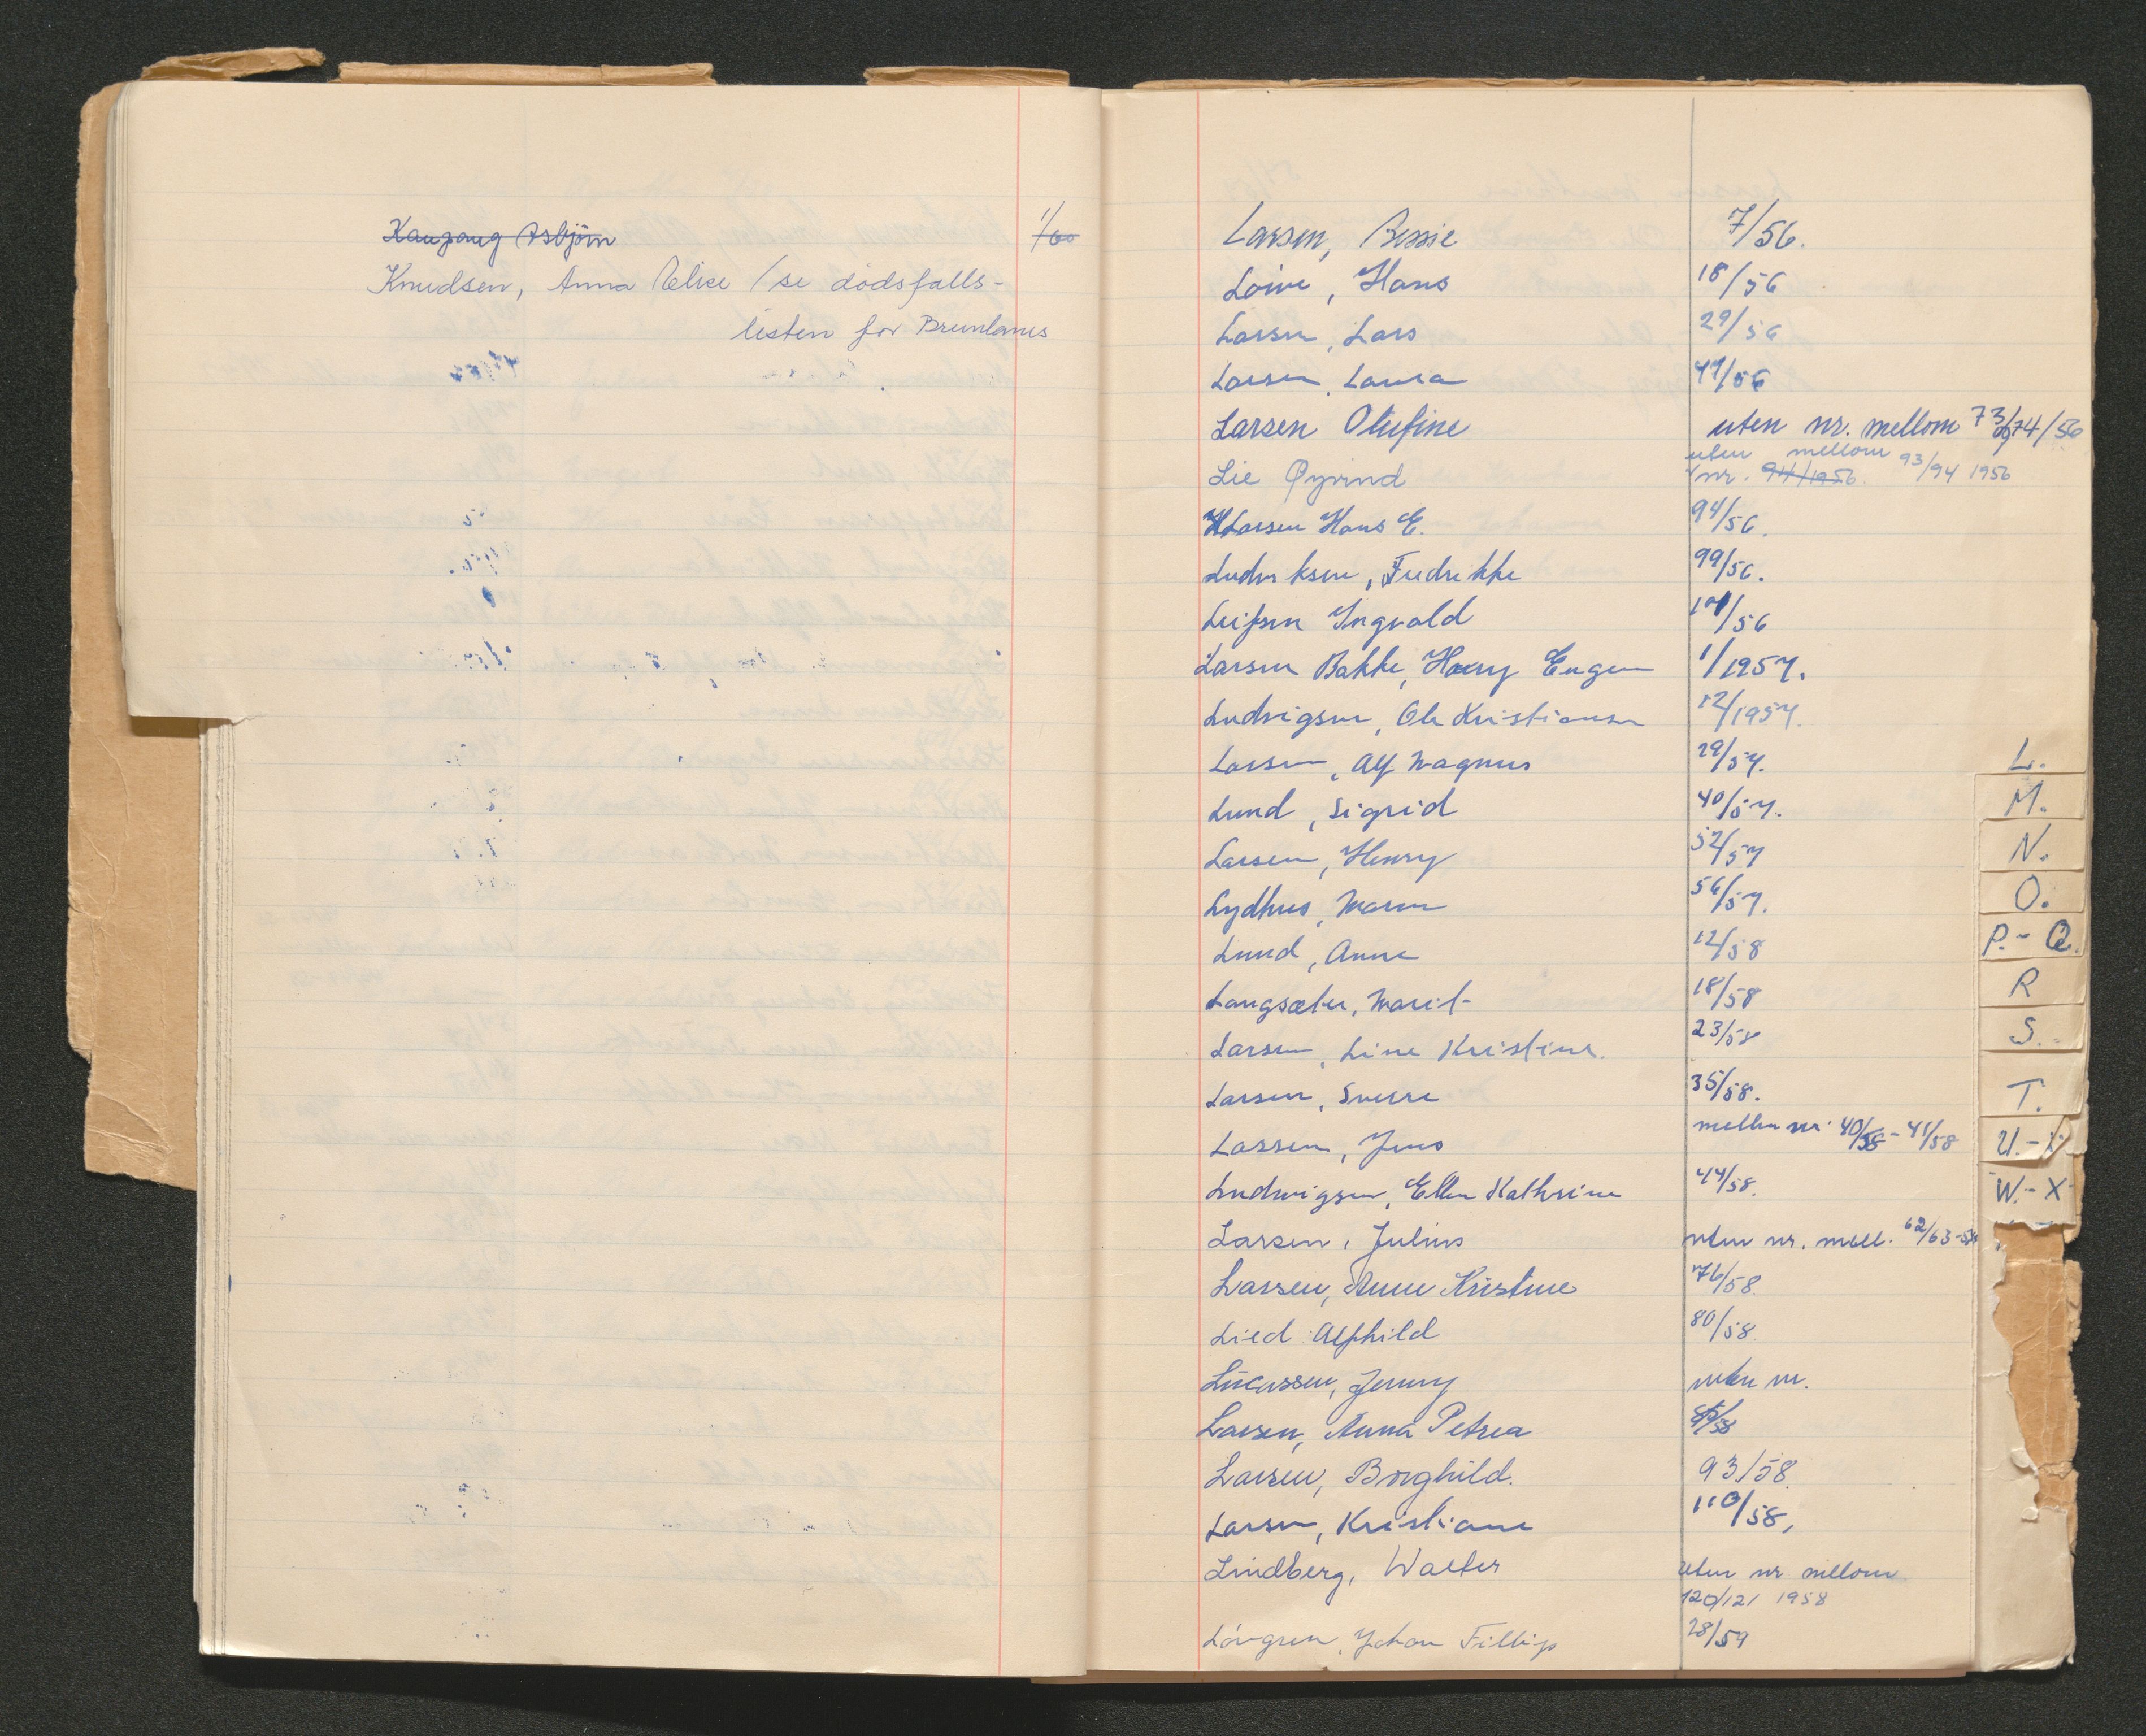 Kaugang Asbjörn 1/60
Knudsen, Anna Elise (se dødsfalls-
listen for Brunlanes
Larsen, Bessie 7/56.
Loive, Hans 18/56
Larsen, Lars 29/56
Larsen, Laura 47/56
Larsen Olufine uten nr. mellom 73/74/56
Lie Øyvind uten nr. 94/1956 mellom 93/94 1956
Larsen Hans E. 94/56.
Ludviksen, Fredrikke 99/56.
Leifsen Ingvald /56
Larsen Bakke, Harry Eugen 1/1957.
Ludvigsen, Ole Kristiansen 12/1957.
Larsen, Alf Magnus 29/57.
Lund, Sigrid 40/57.
Larsen, Henry 52/57
Lydhus, Maren 56/57.
Lund, Anne 12/58
Langsæter, Marit 18/58
Larsen, Line Kristine. 23/58
Larsen, Sverre 35/58.
Larsen, Jens mellom nr. 40/58 - 41/58
Ludwigsen, Ellen Kathrine 44/58.
Larsen, Julius uten nr. mell. 62/63-58
Larsen, Anne Kristine 76/58.
Lied Alfhild 80/58.
Lucassen, Jenny uten nr.
Larsen, Anna Petrea /58
Larsen, Borghild. 93/58.
Larsen, Kristiane 110/58,
Lindberg, Walter uten nr mellom
120/121 1958
Lövgren, Johan Fillip 28/59
L.
M.
N.
O.
P.-Q.
R
S.
T.
U.-V
W.-X